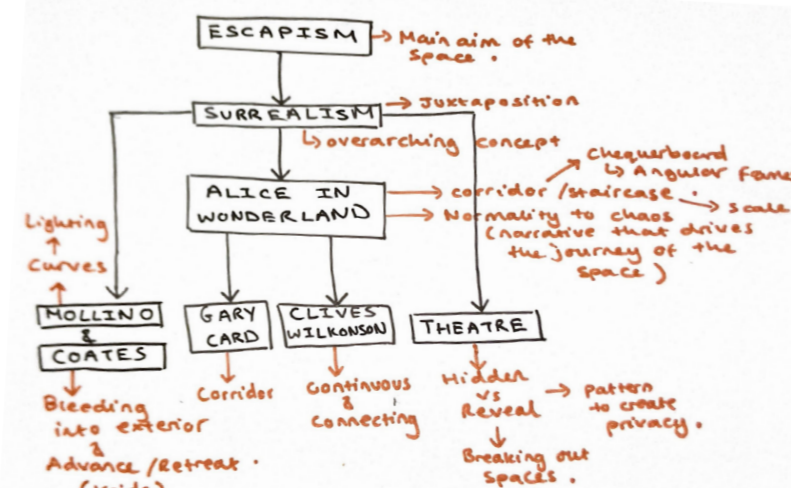 ESCAPISM
Main aim of the
space.
SURREALISM
Juxtaposition
overarching concept
ALICE IN
WONDERLAND
corridor/staircase.
Chequerboard
Angular
Scale
Normality to chaos
(narrative that drives
the journey of the
space)
Lighting
Curves
MOLLINO
&
COATES
Bleeding
into exterior
&
Advance/Retreat.
GARY
CARD
Corridor
CLIVES
WILKONSON
Continuous
&
Connecting
THEATRE
Hidden
vs
Reveal
pattern
to create
privacy.
Breaking out
spaces.